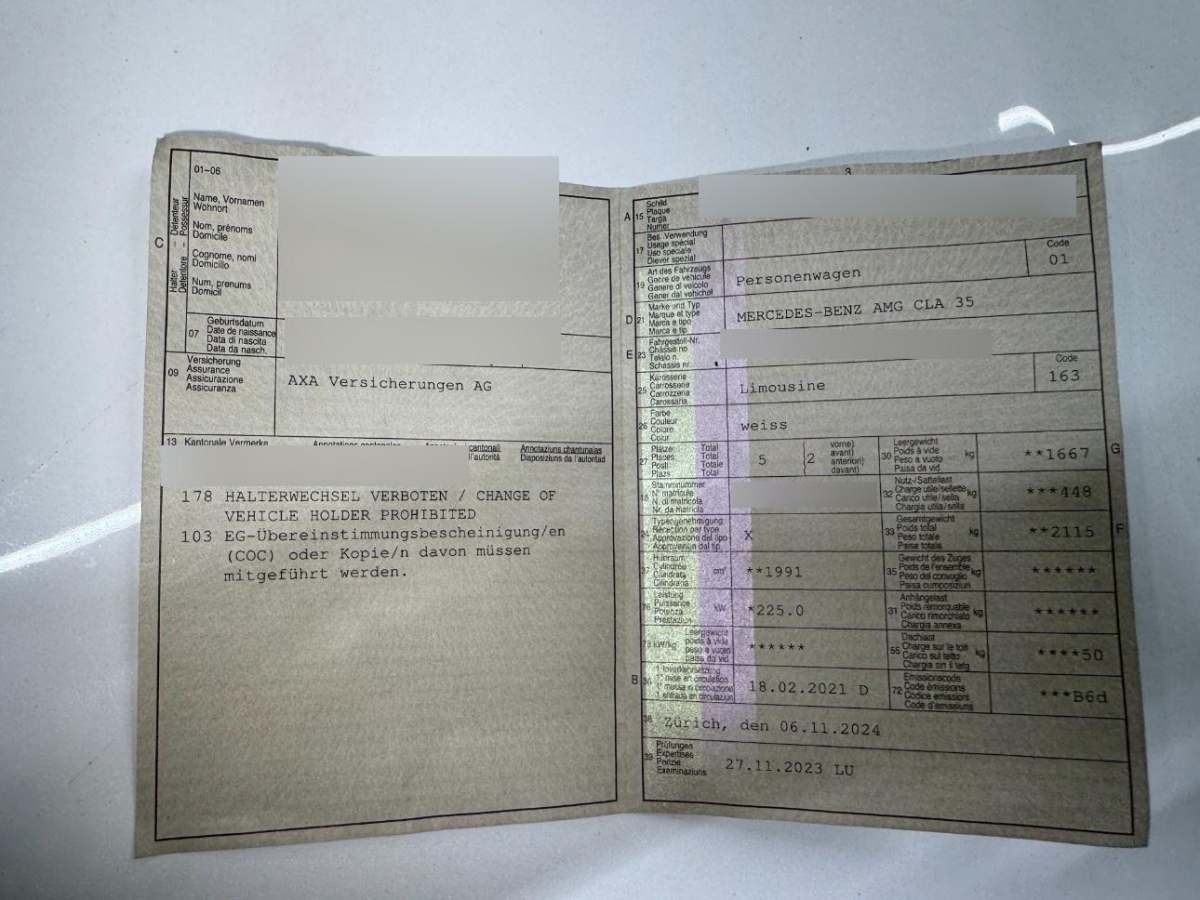 01-06
Halter Detentore
Détenteur Possessur
Name, Vornamen
Wohnort
Nom, prénoms
Domicile
Cognome, nomi
Domicilio
Num, prenums
Domicil
C
07
Geburtsdatum
Date de naissance
Data di nascita
Data da nasch.
09
Versicherung
Assurance
Assicurazione
Assicuranza
AXA Versicherungen AG
13 Kantonale Vermerke
cantonali
l'autorità
Annotaziuns chantunalas
Disposiziuns da l'autoritad
178 HALTERWECHSEL VERBOTEN / CHANGE OF
VEHICLE HOLDER PROHIBITED
103 EG-Übereinstimmungsbescheinigung/en
(COC) oder Kopie/n davon müssen
mitgeführt werden.
3
A 15
Schild
Plaque
Targa
Numer
17
Bes. Verwendung
Usage spécial
Uso speciale
Diever spezial
19
Art des Fahrzeugs
Genre de véhicule
Genere di veicolo
Gener dal vehichel
Personenwagen
Code
01
D 21
Marke und Typ
Marque et type
Marca e tipo
Marca e tip
MERCEDES-BENZ AMG CLA 35
E 23
Fahrgestell-Nr.
Châssis no
Telaio n.
Schassis nr.
25
Karosserie
Carrosserie
Carrozzeria
Carossaria
Limousine
Code
163
26
Farbe
Couleur
Colore
Colur
weiss
27
Plätze Total
Places Total
Posti Totale
Plazs Total
5 (2
vorne)
avant)
anteriori)
davant)
30
Leergewicht
Poids à vide
Peso a vuoto
Paisa da vid
kg
**1667
G
18
Stammnummer
N° matricule
N. di matricola
Nr. da matricla
32
Nutz-/Sattellast
Charge utile/sellette
Carico utile/sella
Chargia utila/sella
kg
***448
24
Typengenehmigung
Réception par type
Approvazione del tipo
Approvaziun dal tip
X
33
Gesamtgewicht
Poids total
Peso totale
Paisa totala
kg
**2115
F
37
Hubraum
Cylindrée
Cilindrata
Cilindrada
cm³
**1991
35
Gewicht des Zuges
Poids de l'ensemble
Peso del convoglio
Paisa cumposiziun
kg
******
76
Leistung
Puissance
Potenza
Prestaziun
kW
*225.0
31
Anhängelast
Poids remorquable
Carico rimorchiato
Chargia annexa
kg
******
kW/kg
Leergewicht
poids à vide
peso a vuoto
paisa da vid
******
55
Dachlast
Charge sur le toit
Carico sul tetto
Chargia sin il tetg
kg
****50
B 36
1. Inverkehrsetzung
1re mise en circulation
1. messa in circolazione
1. entrada en circulaziun
18.02.2021 D
72
Emissionscode
Code émissions
Codice emissioni
Code d'emissiuns
***B6d
38
Zürich, den 06.11.2024
39
Prüfungen
Expertises
Perizie
Examinaziuns
27.11.2023 LU